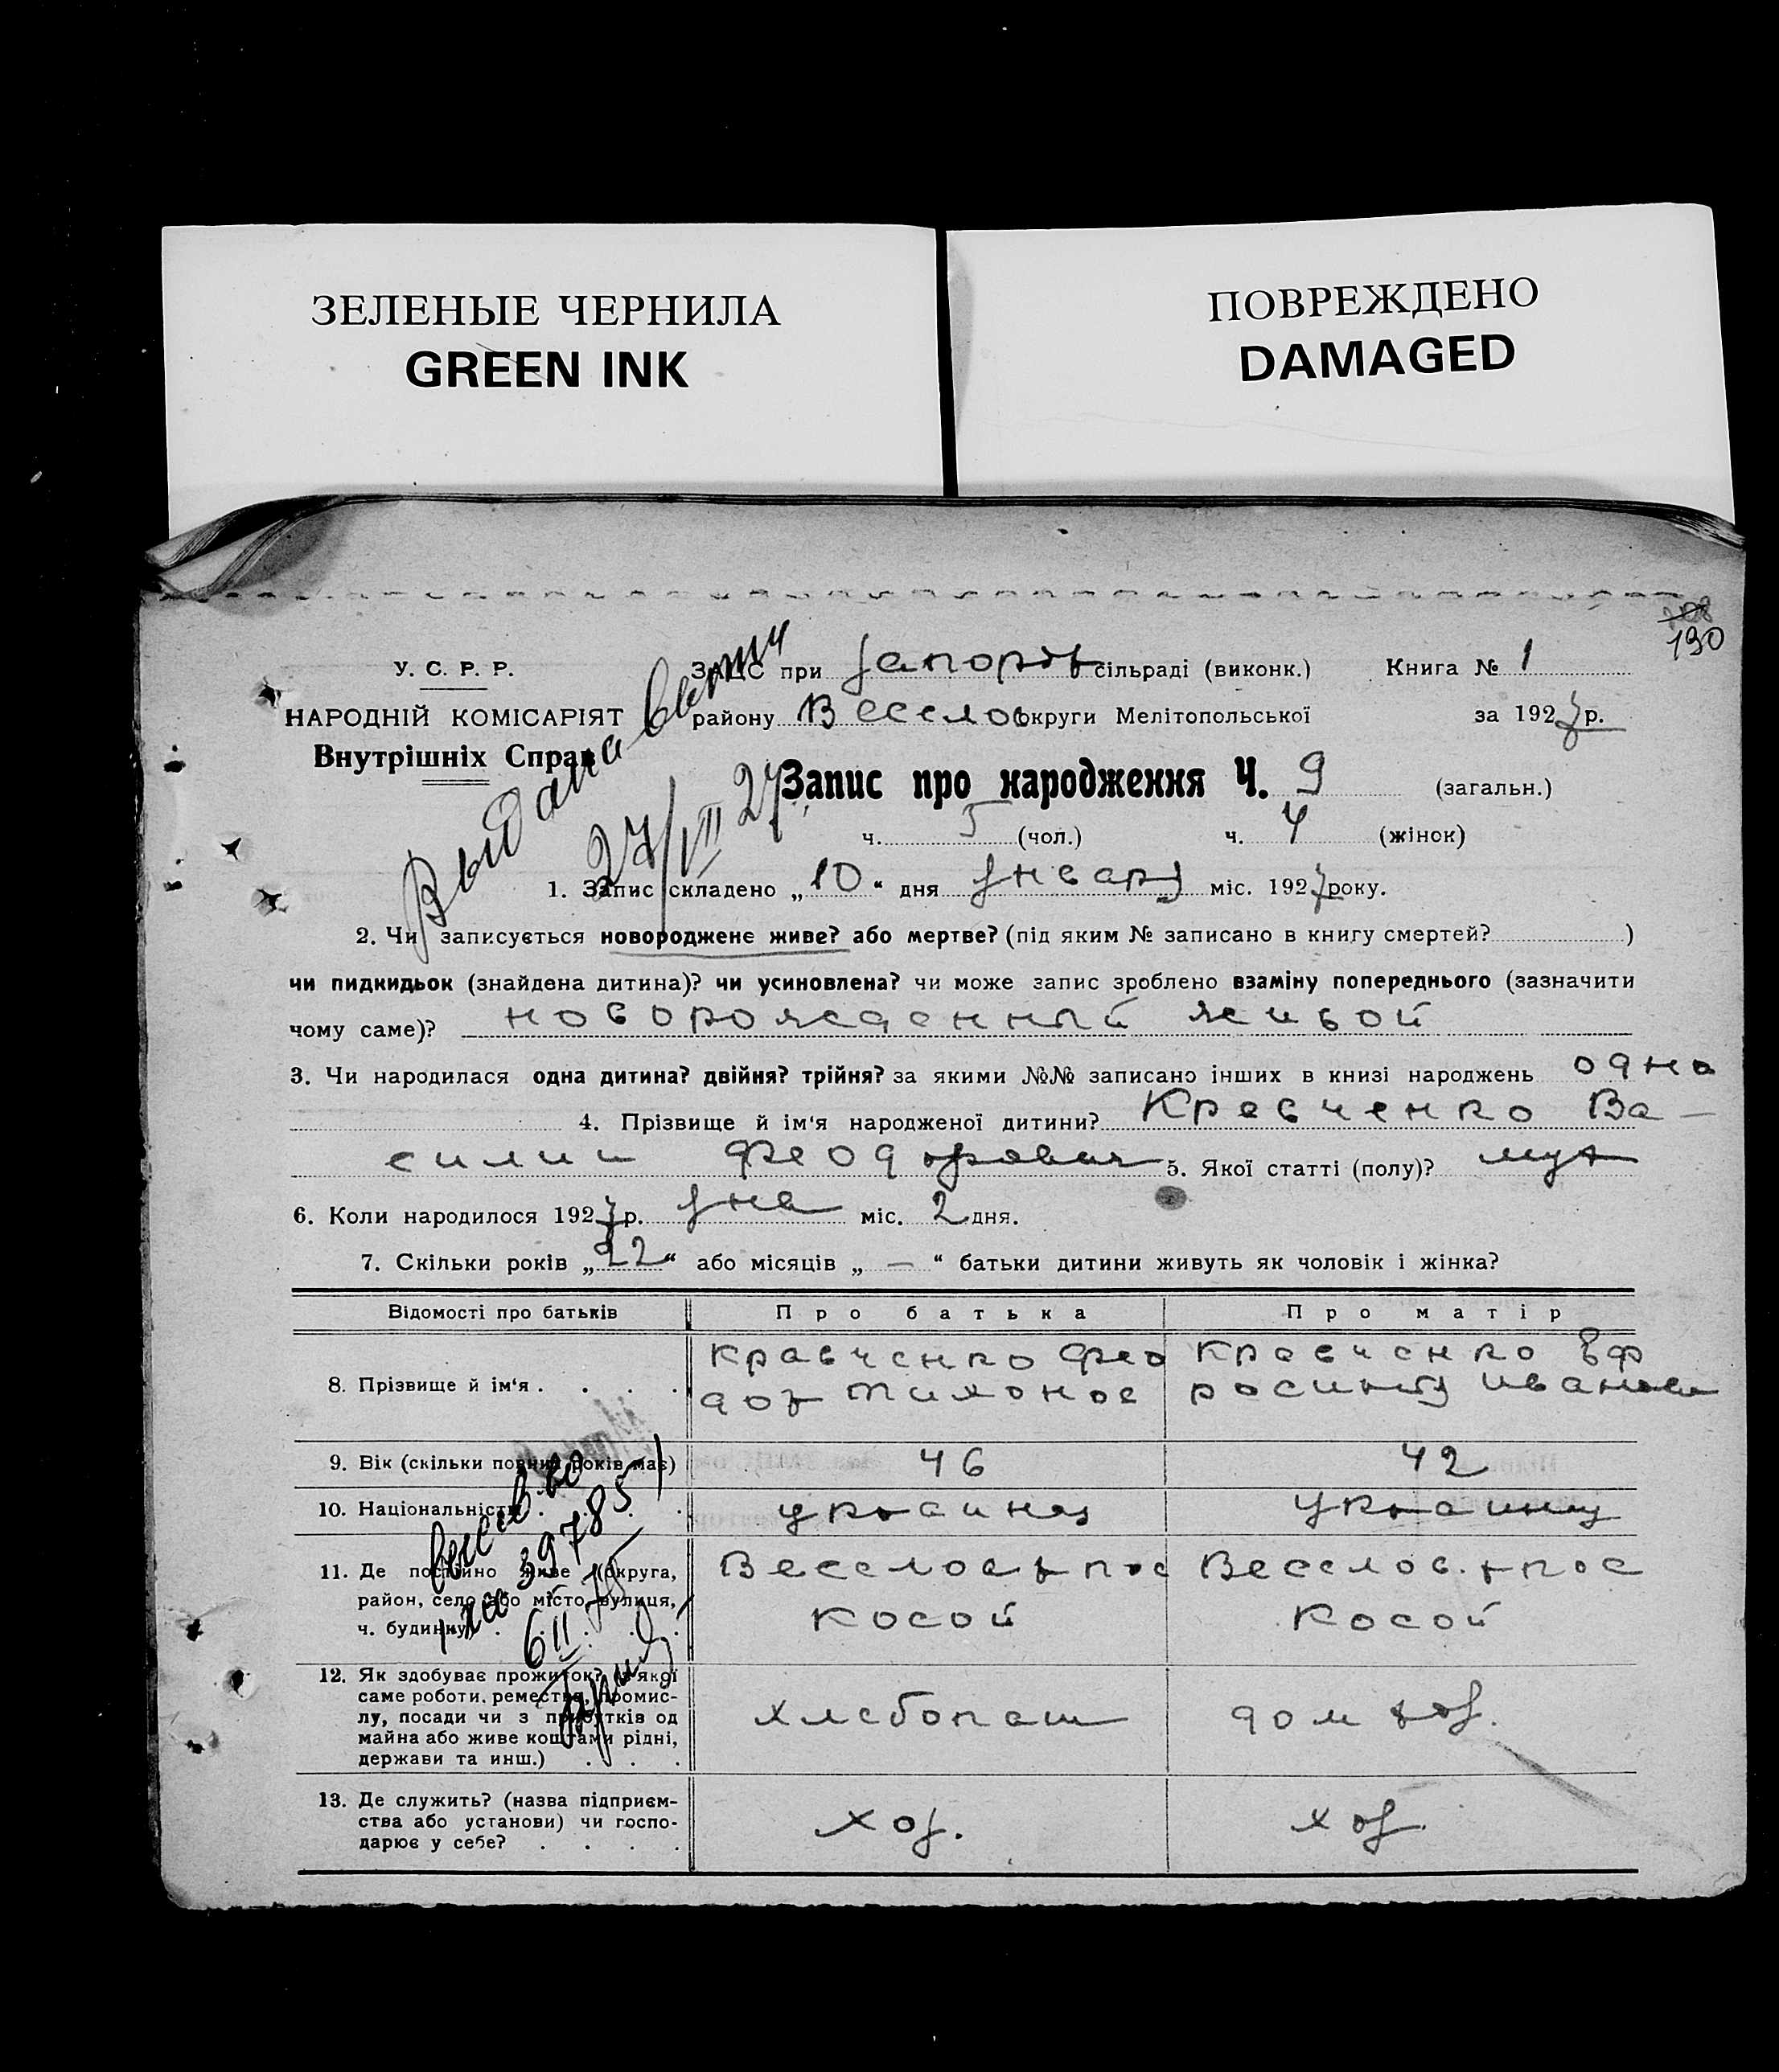 ЗЕЛЕНЫЕ ЧЕРНИЛА
GREEN INK
ПОВРЕЖДЕНО
DAMAGED
190
У. С. Р. Р.
НАРОДНІЙ КОМІСАРІЯТ
Внутрішніх Справ
ЗАЦС при Запорож сільраді (виконк.) Книга № 1
району Веселов округи Мелітопольської за 1927 р.
Запис про народження Ч. 9 (загальн.)
ч. 5 (чол.) ч. 4 (жінок)
Выдана
27/VII 27
1. Запис складено „10“ дня января міс. 1927 року.
2. Чи записується новороджене живе? або мертве? (під яким № записано в книгу смертей? )
чи пидкидьок (знайдена дитина)? чи усиновлена? чи може запис зроблено взаміну попереднього (зазначити
чому саме)? новорожденный живой
3. Чи народилася одна дитина? двійня? трійня? за якими №№ записано інших в книзі народжень одна
4. Прізвище й ім'я народженої дитини? Кравченко Ва–
силий Феодорович 5. Якої статті (полу)? муж
6. Коли народилося 1927 р. янв міс. 2 дня.
7. Скільки років „22“ або місяців „ — “ батьки дитини живуть як чоловік і жінка?
Відомості про батьків Про батька Про матір
8. Прізвище й ім'я . . . . Кравченко Фео Кравченко Еф
дор Тихонов росиния Иванов
9. Вік (скільки повних років має) 46 42
10. Національність . . . .
11. Де постійно живе (округа, Веселов р пос Веселов. р пос
район, село або місто, вулиця, Косой Косой
ч. будинку) . . . .
39785
6 II 75
12. Як здобуває прожиток? (з якої
саме роботи, ремества, промис-
лу, посади чи з прибутків од хлебопаш дом хоз.
майна або живе коштами рідні,
держави та инш.) . . .
13. Де служить? (назва підприєм-
ства або установи) чи госпо- хоз. хоз
дарює у себе? . . . .